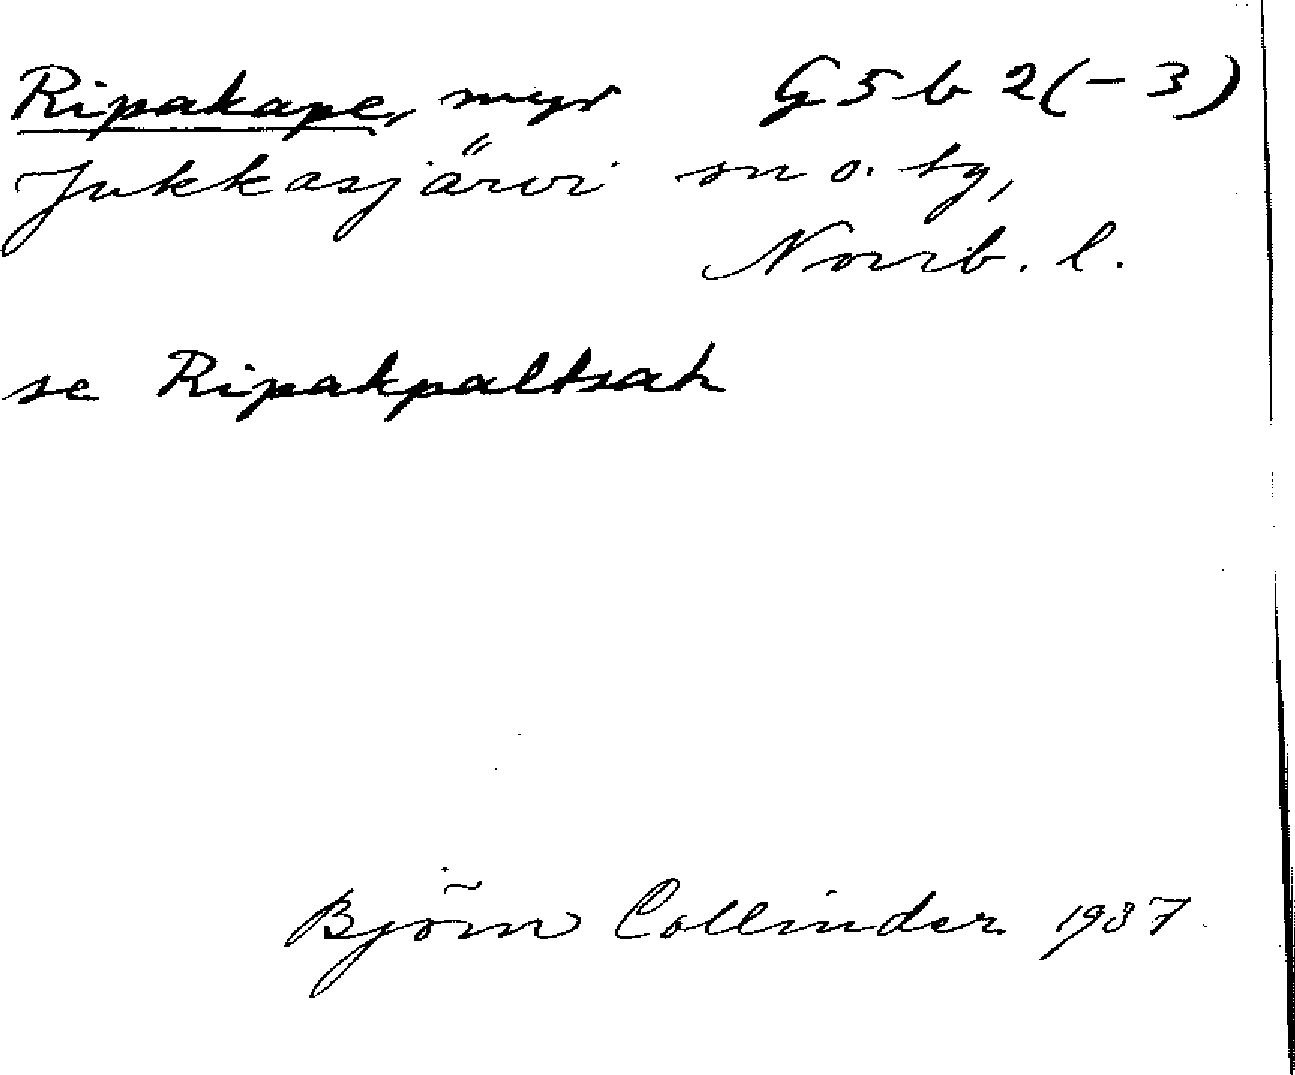 Ripakape, myr G 5 b 2(-3)
Jukkasjärvi sn o. tg,
Norrb. l.
se Ripakpaltsah
Björn Collinder 1937